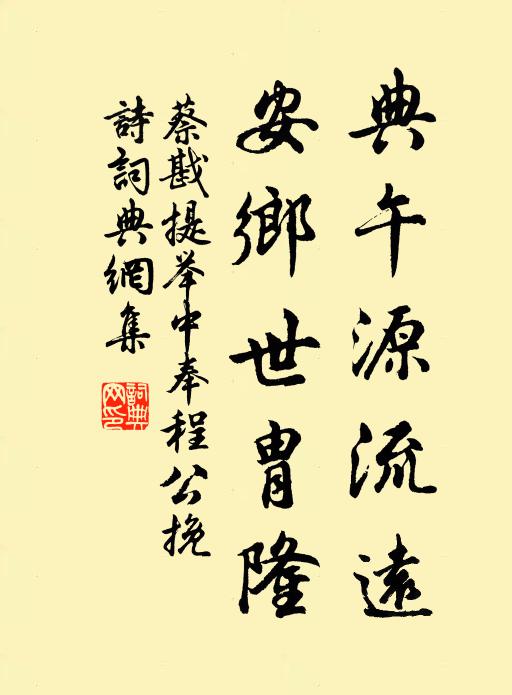 典午源流遠
安鄉世胄隆
蔡戡提举中奉程公挽
詩詞典網集
詞典网印